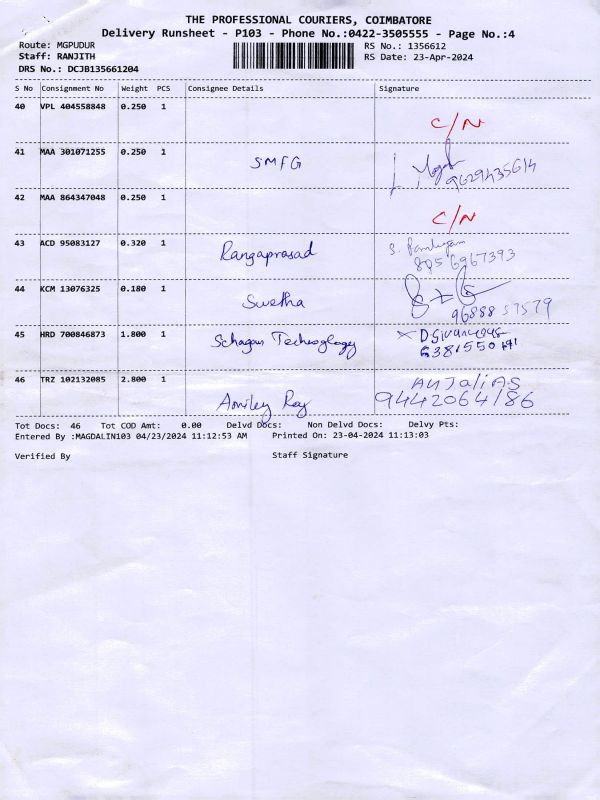 THE PROFESSIONAL COURIERS, COIMBATORE
Delivery Runsheet - P103 - Phone No.:0422-3505555 - Page No.:4
Route: MGPUDUR RS No.: 1356612
Staff: RANJITH RS Date: 23-Apr-2024
DRS No.: DCJB135661204
S No Consignment No Weight PCS Consignee Details Signature
40 VPL 404558848 0.250 1 C/N
41 MAA 301071255 0.250 1 SMFG 9629435614
42 MAA 864347048 0.250 1 C/N
43 ACD 95083127 0.320 1 Rangaprasad S.
8056967393
44 KCM 13076325 0.180 1 Swetha
9688857579
45 HRD 700846873 1.800 1 Schagan
46 TRZ 102132085 2.800 1 Roy AnJaliAS
9442064186
Tot Docs: 46 Tot COD Amt: 0.00 Delvd Docs: Non Delvd Docs: Delvy Pts:
Entered By :MAGDALIN103 04/23/2024 11:12:53 AM Printed On: 23-04-2024 11:13:03
Verified By Staff Signature